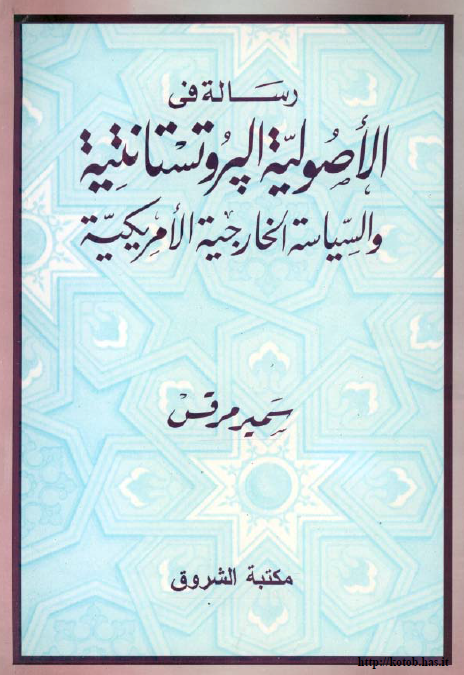 رسالة فى
الأصوليّة البروتستانتية
والسّياسة الخارجية الأمريكيّة
سمير مرقس
مكتبة الشروق
http://kotob.has.it